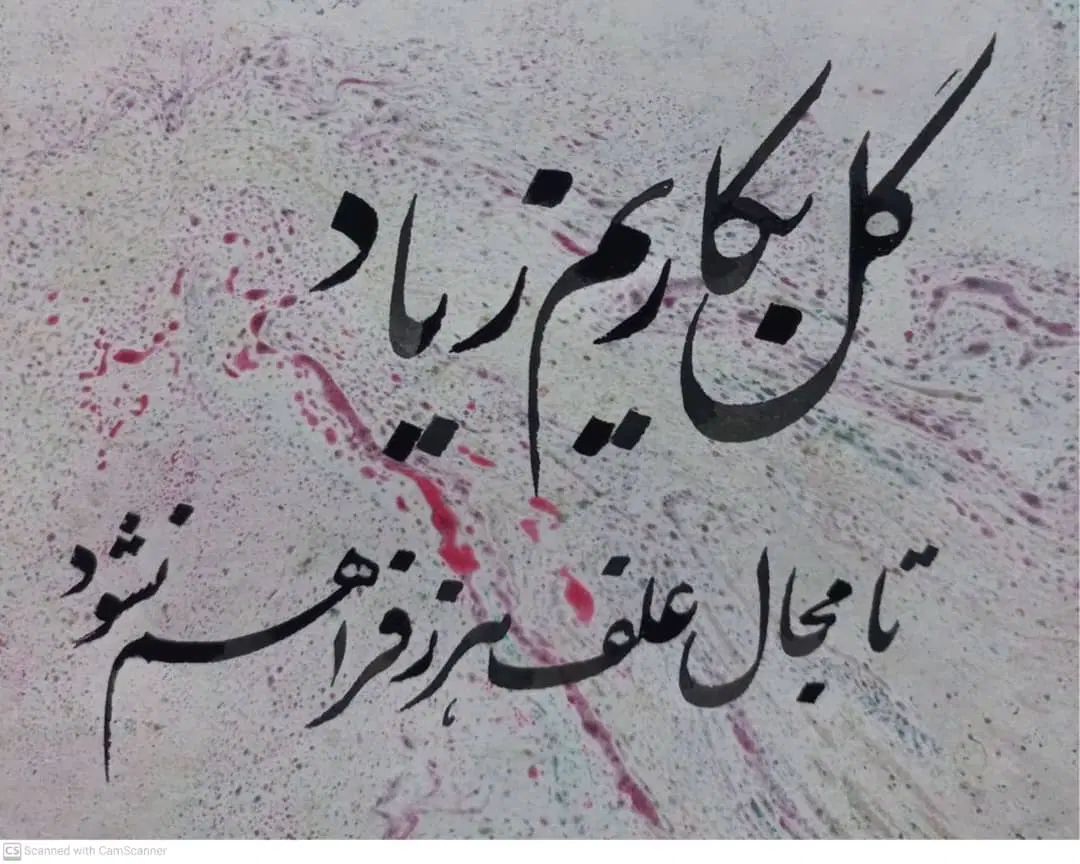 گل بکاریم زیاد
تا مجال علف هرز فراهم نشود
CS Scanned with CamScanner